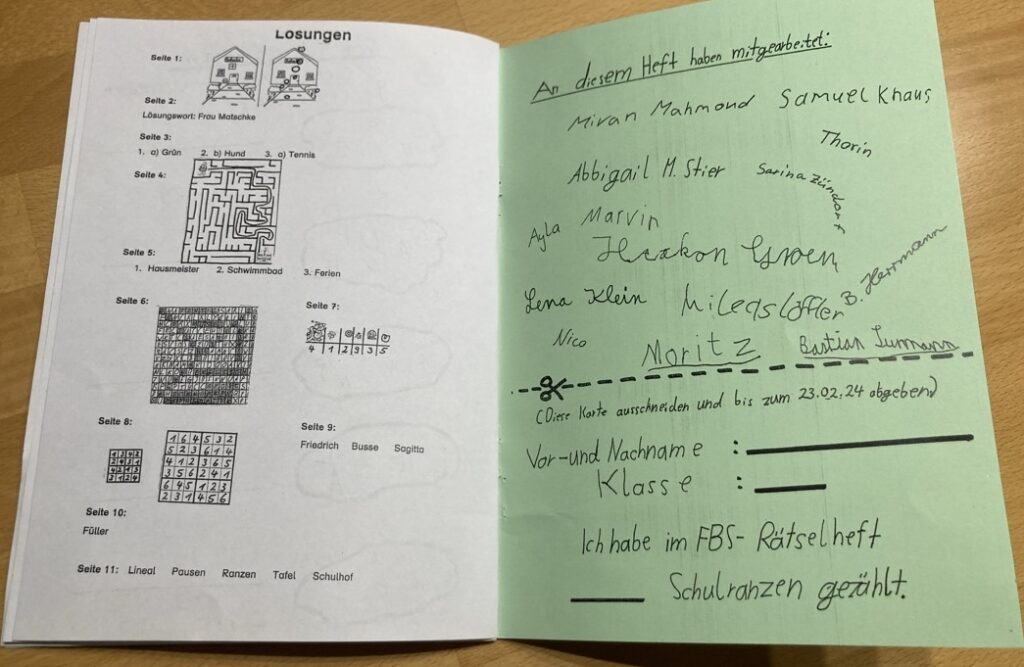 Lösungen
Seite 1:
Seite 2:
Lösungswort: Frau Matschke
Seite 3:
1. a) Grün 2. b) Hund 3. a) Tennis
Seite 4:
Seite 5:
1. Hausmeister 2. Schwimmbad 3. Ferien
Seite 6:
Seite 7:
4 1 2 9 3 5
Seite 8:
1 6 4 5 3 2
5 2 3 6 1 4
4 1 2 3 6 5
3 5 6 2 4 1
6 4 5 1 2 3
2 3 1 4 5 6
Seite 9:
Friedrich Busse Sagitta
Seite 10:
Füller
Seite 11: Lineal Pausen Ranzen Tafel Schulhof
An diesem Heft haben mitgearbeitet:
Miran Mahmond Samuel Khaus
Thorin
Abbigail M. Stier Sarina Zündorf
Ayla Marvin
Lena Klein
B. Herrmann
Nico
Moritz Bastian
(Diese Karte ausschneiden und bis zum 23.02.24 abgeben)
Vor- und Nachname :
Klasse :
Ich habe im FBS- Rätselheft
Schulranzen gezählt.